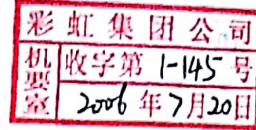 彩虹集团公司
机要室
收字第 1-145 号
2006 年 7 月 20 日